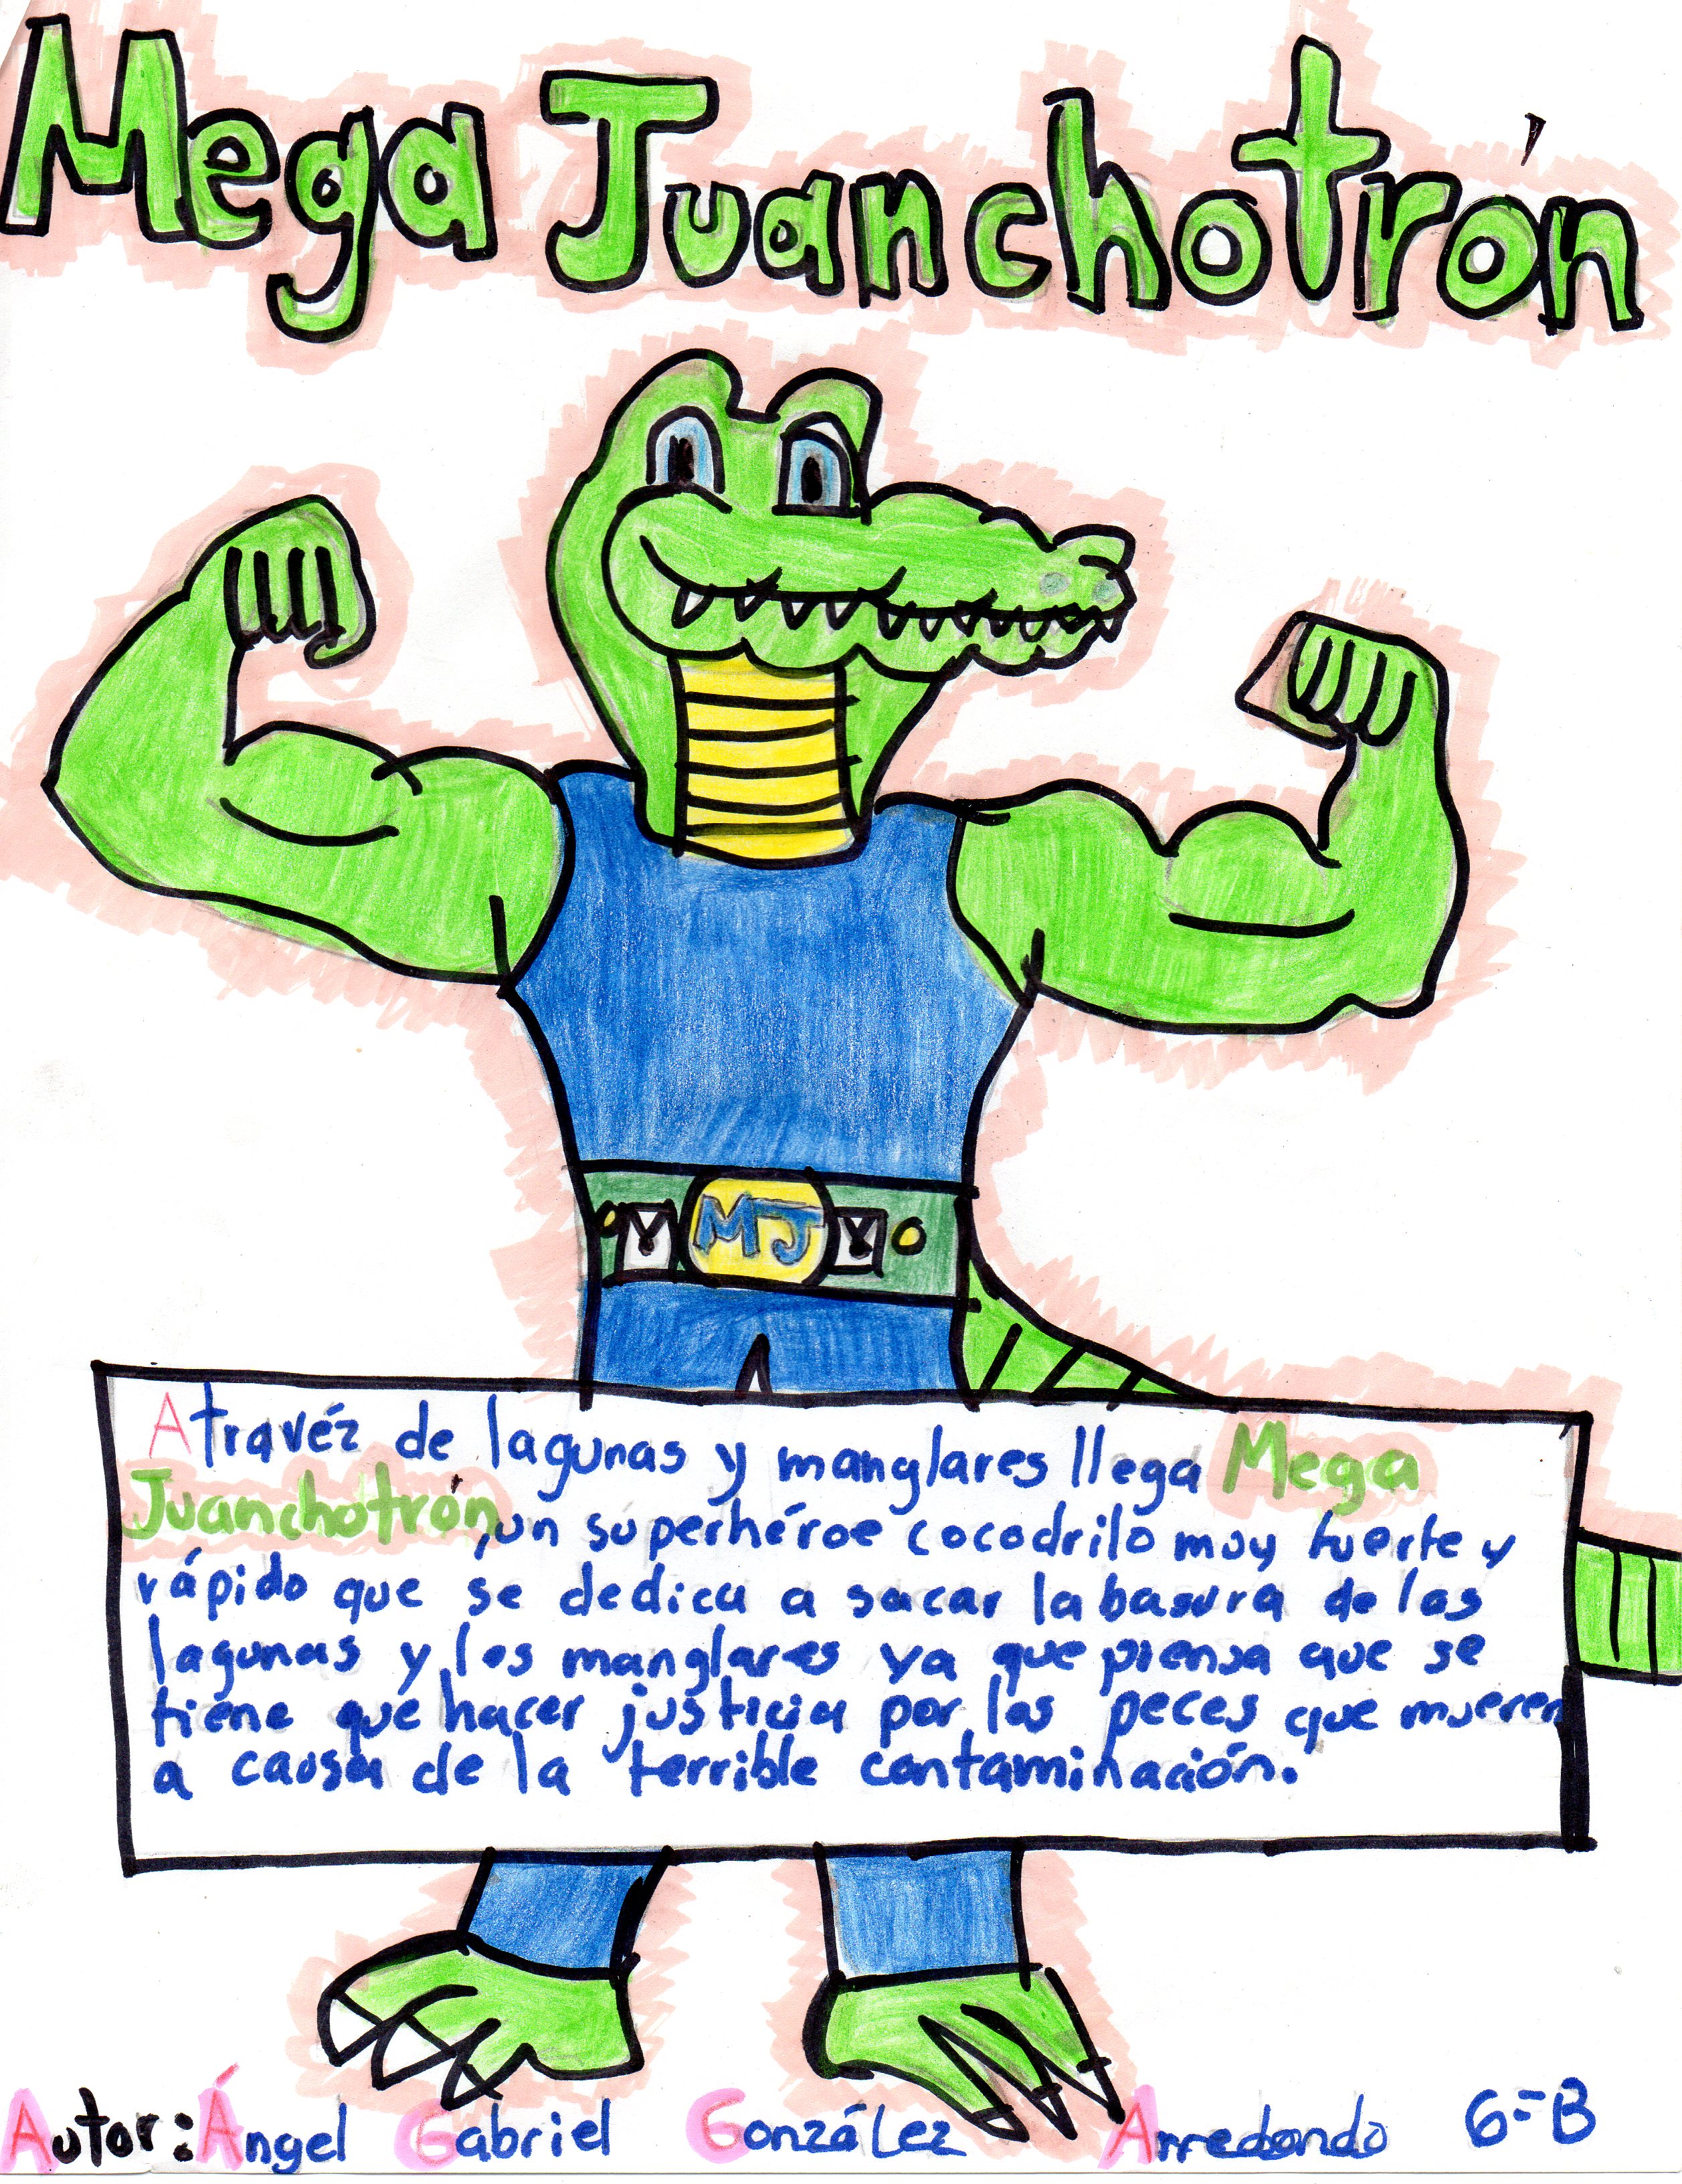 Mega Juanchotrón
MJ
Atravéz de lagunas y manglares llega Mega
Juanchotrón, un superhéroe cocodrilo muy fuerte y
rápido que se dedica a sacar la basura de las
lagunas y los manglares ya que piensa que se
tiene que hacer justicia por los peces que mueren
a causa de la terrible contaminación.
Autor: Ángel Gabriel González Arredondo 6-B